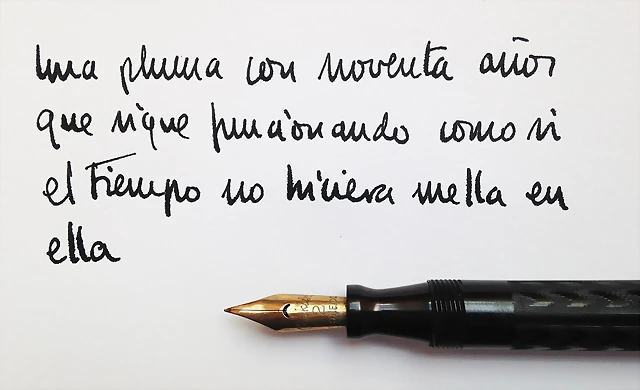 Una pluma con noventa años
que sigue funcionando como si
el tiempo no hiciera mella en
ella